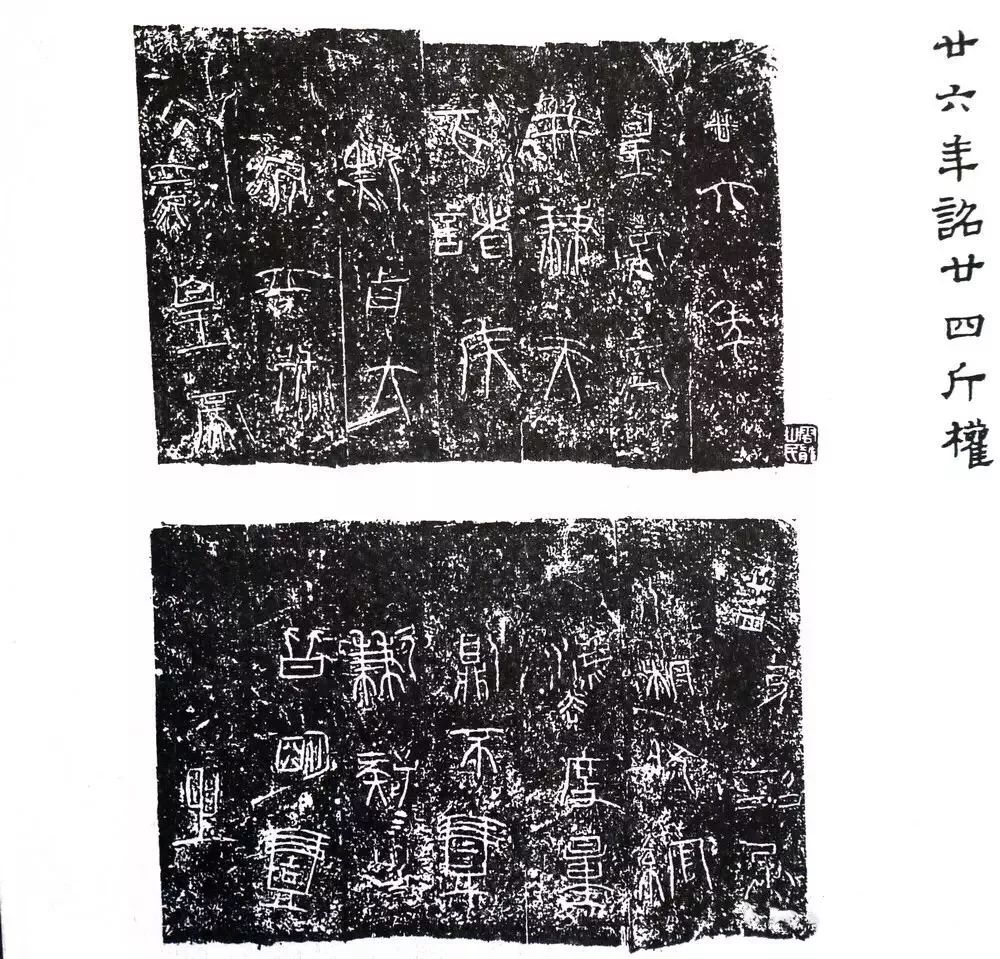 廿六年詔廿四斤權
廿六年
皇帝盡
并兼天
下諸侯
黔首大
安立號
為皇帝
乃詔丞
相狀綰
灋度量
則不壹
歉疑者
皆明壹
之